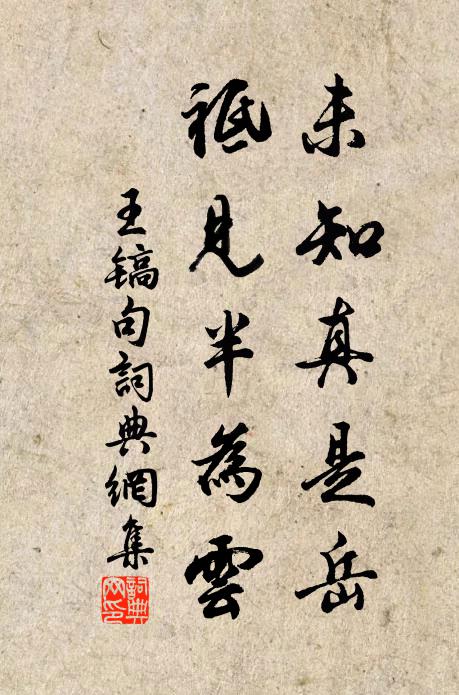 未知真是岳
祗見半為雲
王鎬句詞典網集
詞典网印